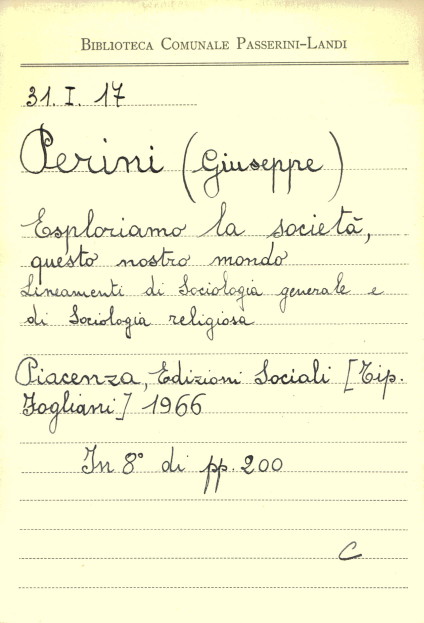 BIBLIOTECA COMUNALE PASSERINI-LANDI
31. I. 17
Perini (Giuseppe)
Esploriamo la società,
questo nostro mondo
Lineamenti di Sociologia generale e
di Sociologia religiosa
Piacenza, Edizioni Sociali [Tip.
Fogliani] 1966
In 8° di pp. 200
C